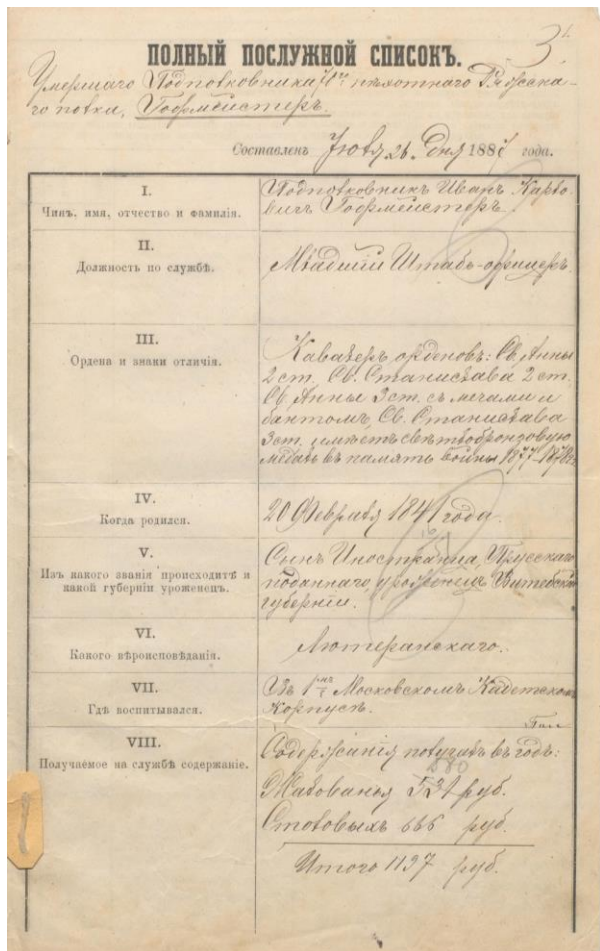 3
ПОЛНЫЙ ПОСЛУЖНОЙ СПИСОКЪ.
Умершаго Подполковника пѣхотнаго Ряжска-
го полка, Гофмейстеръ.
Составленъ Іюля 26 дня 188 года.
I.
Чинъ, имя, отчество и фамилія.
Подполковникъ Иванъ Карло
вичъ Гофмейстеръ.
II.
Должность по службѣ.
Младшій Штабъ-офицеръ.
III.
Ордена и знаки отличія.
Кавалеръ орденовъ: Св. Анны
2 ст., Св. Станислава 2 ст.
Св. Анны 3 ст. съ мечами и
бантомъ, Св. Станислава
3 ст. имѣетъ свѣтлобронзовую
медаль въ память войны 1877-1878
IV.
Когда родился.
20 Февраля 1841 года.
V.
Изъ какого званія происходитъ и
какой губерніи уроженецъ.
Сынъ Иностранца, Прусскаго
подданнаго, уроженецъ Витебской
губерніи.
VI.
Какого вѣроисповѣданія.
Лютеранскаго.
VII.
Гдѣ воспитывался.
Въ 1мъ Московскомъ Кадетскомъ
Корпусѣ.
VIII.
Получаемое на службѣ содержаніе.
Содержанія получалъ въ годъ:
580
Жалованья 531 руб.
Столовыхъ 666 руб.
Итого 1197 руб.